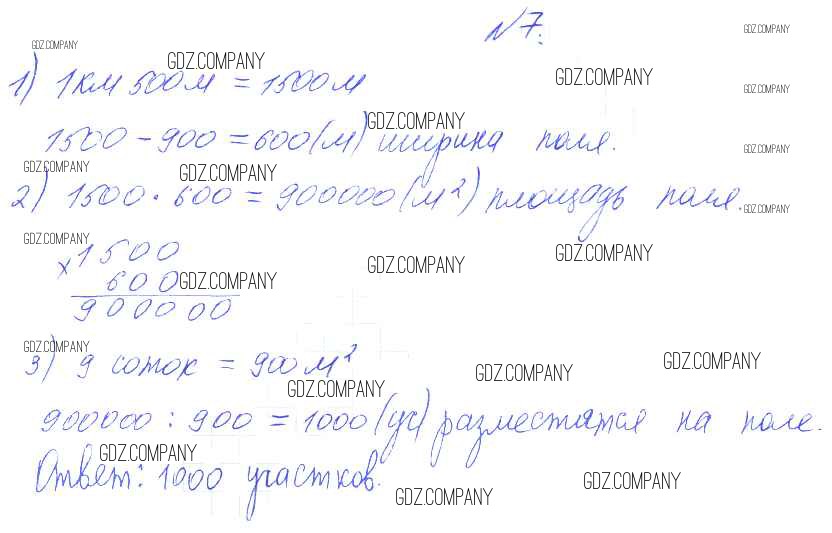 №7.
GDZ.COMPANY GDZ.COMPANY GDZ.COMPANY GDZ.COMPANY
1) 1км 500м = 1500м
GDZ.COMPANY
GDZ.COMPANY GDZ.COMPANY
1500 - 900 = 600(м) ширина поля.
GDZ.COMPANY GDZ.COMPANY
2) 1500 · 600 = 900000(м²) площадь поля.
GDZ.COMPANY
GDZ.COMPANY GDZ.COMPANY GDZ.COMPANY
× 1500
600
GDZ.COMPANY
900000
GDZ.COMPANY
3) 9 соток = 900м²
GDZ.COMPANY GDZ.COMPANY GDZ.COMPANY
900000 : 900 = 1000(уч) разместятся на поле.
GDZ.COMPANY
Ответ: 1000 участков.
GDZ.COMPANY GDZ.COMPANY